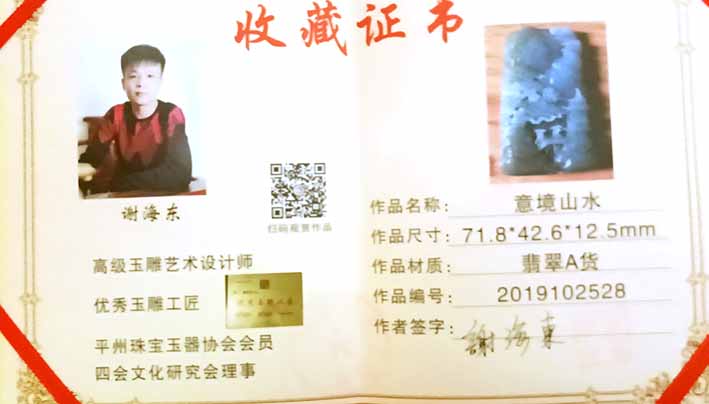 收藏证书
谢海东
扫码观赏作品
高级玉雕艺术设计师
优秀玉雕工匠
平州珠宝玉器协会会员
四会文化研究会理事
作品名称：意境山水
作品尺寸：71.8*42.6*12.5mm
作品材质：翡翠A货
作品编号：2019102528
作者签字：謝海東